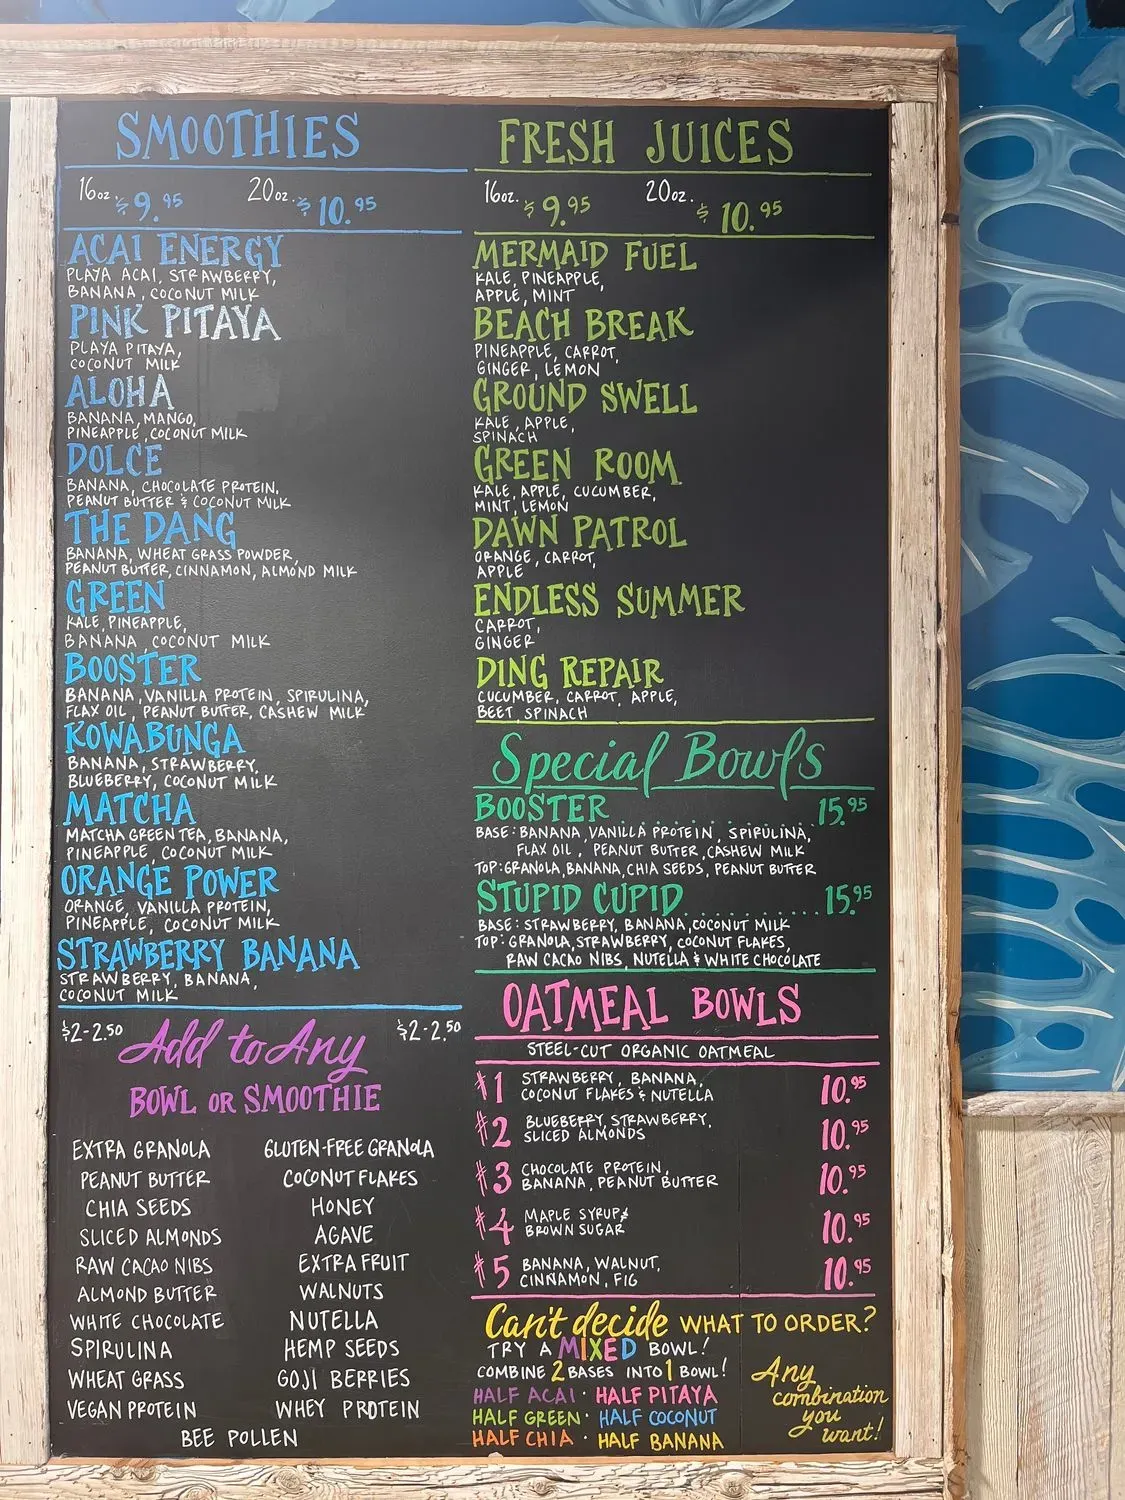 SMOOTHIES
16oz. $9.95 20oz. $10.95
ACAI ENERGY
PLAYA ACAI, STRAWBERRY,
BANANA, COCONUT MILK
PINK PITAYA
PLAYA PITAYA,
COCONUT MILK
ALOHA
BANANA, MANGO,
PINEAPPLE, COCONUT MILK
DOLCE
BANANA, CHOCOLATE PROTEIN,
PEANUT BUTTER & COCONUT MILK
THE DANG
BANANA, WHEAT GRASS POWDER,
PEANUT BUTTER, CINNAMON, ALMOND MILK
GREEN
KALE, PINEAPPLE,
BANANA, COCONUT MILK
BOOSTER
BANANA, VANILLA PROTEIN, SPIRULINA,
FLAX OIL, PEANUT BUTTER, CASHEW MILK
KOWABUNGA
BANANA, STRAWBERRY,
BLUEBERRY, COCONUT MILK
MATCHA
MATCHA GREEN TEA, BANANA,
PINEAPPLE, COCONUT MILK
ORANGE POWER
ORANGE, VANILLA PROTEIN,
PINEAPPLE, COCONUT MILK
STRAWBERRY BANANA
STRAWBERRY, BANANA,
COCONUT MILK
$2-2.50 Add to Any $2-2.50
BOWL OR SMOOTHIE
EXTRA GRANOLA GLUTEN-FREE GRANOLA
PEANUT BUTTER COCONUT FLAKES
CHIA SEEDS HONEY
SLICED ALMONDS AGAVE
RAW CACAO NIBS EXTRA FRUIT
ALMOND BUTTER WALNUTS
WHITE CHOCOLATE NUTELLA
SPIRULINA HEMP SEEDS
WHEAT GRASS GOJI BERRIES
VEGAN PROTEIN WHEY PROTEIN
BEE POLLEN
FRESH JUICES
16oz. $9.95 20oz. $10.95
MERMAID FUEL
KALE, PINEAPPLE,
APPLE, MINT
BEACH BREAK
PINEAPPLE, CARROT,
GINGER, LEMON
GROUND SWELL
KALE, APPLE,
SPINACH
GREEN ROOM
KALE, APPLE, CUCUMBER,
MINT, LEMON
DAWN PATROL
ORANGE, CARROT,
APPLE
ENDLESS SUMMER
CARROT,
GINGER
DING REPAIR
CUCUMBER, CARROT, APPLE,
BEET, SPINACH
Special Bowls
BOOSTER.............15.95
BASE: BANANA, VANILLA PROTEIN, SPIRULINA,
FLAX OIL, PEANUT BUTTER, CASHEW MILK
TOP: GRANOLA, BANANA, CHIA SEEDS, PEANUT BUTTER
STUPID CUPID.........15.95
BASE: STRAWBERRY, BANANA, COCONUT MILK
TOP: GRANOLA, STRAWBERRY, COCONUT FLAKES,
RAW CACAO NIBS, NUTELLA & WHITE CHOCOLATE
OATMEAL BOWLS
STEEL-CUT ORGANIC OATMEAL
#1 STRAWBERRY, BANANA, 10.95
COCONUT FLAKES & NUTELLA
#2 BLUEBERRY, STRAWBERRY, 10.95
SLICED ALMONDS
#3 CHOCOLATE PROTEIN, 10.95
BANANA, PEANUT BUTTER
#4 MAPLE SYRUP & 10.95
BROWN SUGAR
#5 BANANA, WALNUT, 10.95
CINNAMON, FIG
Can't decide WHAT TO ORDER?
TRY A MIXED BOWL!
COMBINE 2 BASES INTO 1 BOWL!
HALF ACAI · HALF PITAYA
HALF GREEN · HALF COCONUT
HALF CHIA · HALF BANANA
Any
combination
you
want!